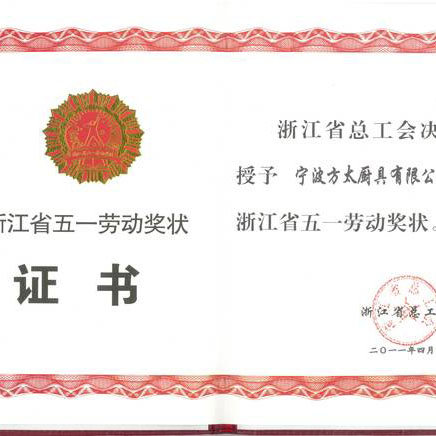 浙江省五一劳动奖状
证书
浙江省总工会决
授予 宁波方太厨具有限公
浙江省五一劳动奖状。
浙江省总工
二〇一一年四月